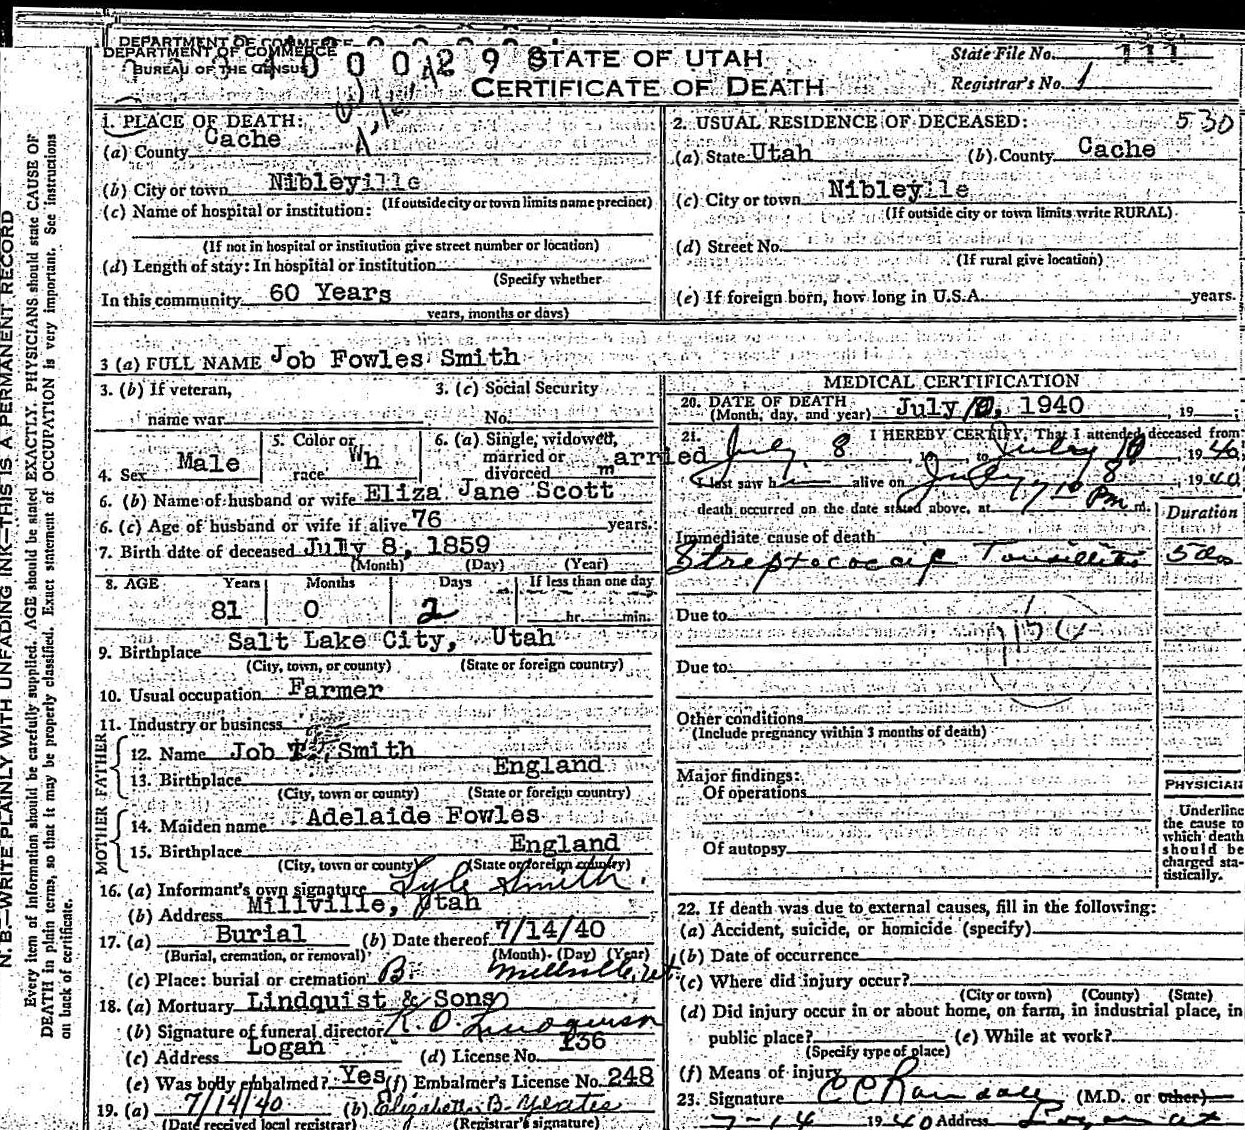 DEPARTMENT OF COMMERCE
DEPARTMENT OF COMMERCE
BUREAU OF THE CENSUS
STATE OF UTAH
CERTIFICATE OF DEATH
State File No. 111
Registrar's No. 1
1. PLACE OF DEATH:
(a) County Cache
(b) City or town Nibleyville
(If outside city or town limits name precinct)
(c) Name of hospital or institution:
(If not in hospital or institution give street number or location)
(d) Length of stay: In hospital or institution
(Specify whether
In this community 60 Years
years, months or days)
2. USUAL RESIDENCE OF DECEASED: 530
(a) State Utah (b) County Cache
(c) City or town Nibleyile
(If outside city or town limits write RURAL)
(d) Street No.
(If rural give location)
(e) If foreign born, how long in U.S.A. years.
3 (a) FULL NAME Job Fowles Smith
3. (b) If veteran, 3. (c) Social Security
name war No.
4. Sex Male 5. Color or race Wh 6. (a) Single, widowed, married or divorced married
6. (b) Name of husband or wife Eliza Jane Scott
6. (c) Age of husband or wife if alive 76 years.
7. Birth date of deceased July 8, 1859
(Month) (Day) (Year)
8. AGE Years Months Days If less than one day
81 0 2 hr. min.
9. Birthplace Salt Lake City, Utah
(City, town, or county) (State or foreign country)
10. Usual occupation Farmer
11. Industry or business
FATHER
12. Name Job T. Smith
13. Birthplace England
(City, town or county) (State or foreign country)
MOTHER
14. Maiden name Adelaide Fowles
15. Birthplace England
(City, town or county) (State or foreign country)
16. (a) Informant's own signature Lyle Smith
(b) Address Millville, Utah
17. (a) Burial (b) Date thereof 7/14/40
(Burial, cremation, or removal) (Month) (Day) (Year)
(c) Place: burial or cremation B. Millville, Ut
18. (a) Mortuary Lindquist & Sons
(b) Signature of funeral director R. O. Lindquist
(c) Address Logan (d) License No. 136
(e) Was body embalmed? Yes (f) Embalmer's License No. 248
19. (a) 7/14/40 (b) Elizabeth B. Yeates
(Date received local registrar) (Registrar's signature)
MEDICAL CERTIFICATION
20. DATE OF DEATH
(Month, day, and year) July 10, 1940, 19
21. I HEREBY CERTIFY, That I attended deceased from
July 8, 19 to July 10, 1940,
I last saw h alive on July 8, 1940,
death occurred on the date stated above, at 7 10 Pm m.
Duration
Immediate cause of death
Streptococcic Tonsillitis 5 da
Due to
Due to
Other conditions
(Include pregnancy within 3 months of death)
Major findings:
Of operations
Of autopsy
PHYSICIAN
Underline
the cause to
which death
should be
charged sta-
tistically.
22. If death was due to external causes, fill in the following:
(a) Accident, suicide, or homicide (specify)
(b) Date of occurrence
(c) Where did injury occur?
(City or town) (County) (State)
(d) Did injury occur in or about home, on farm, in industrial place, in
public place? (e) While at work?
(Specify type of place)
(f) Means of injury
23. Signature C C Randall (M.D. or other)
7-14 1940 Address Logan ut
N. B.—WRITE PLAINLY WITH UNFADING INK—THIS IS A PERMANENT RECORD
Every item of information should be carefully supplied. AGE should be stated EXACTLY. PHYSICIANS should state CAUSE OF
DEATH in plain terms, so that it may be properly classified. Exact statement of OCCUPATION is very important. See instructions
on back of certificate.